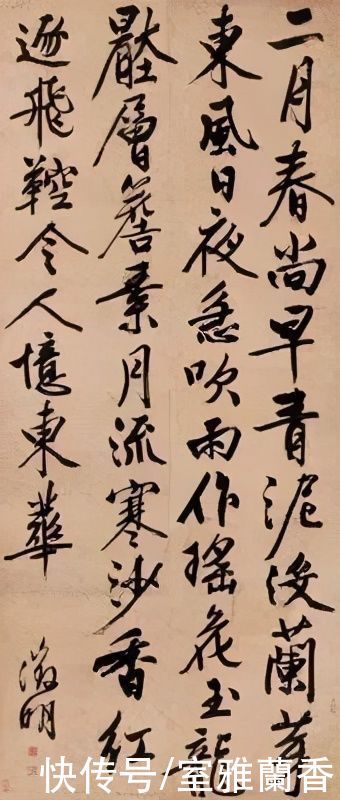 二月春尚早青泥没蘭芽
東風日夜急吹雨作瑤花玉龍
層簷素月流寒沙香紅
逐飛鞚令人憶東華
徵明
快传号/室雅蘭香